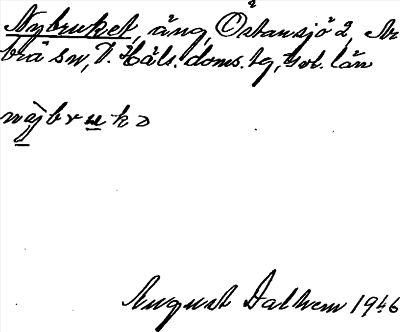 Nybruket, äng, Östansjö 2, Ar
brå sn, V. Häls. doms. tg, Gvl. län
nøjbruka
August Dalhem 1946